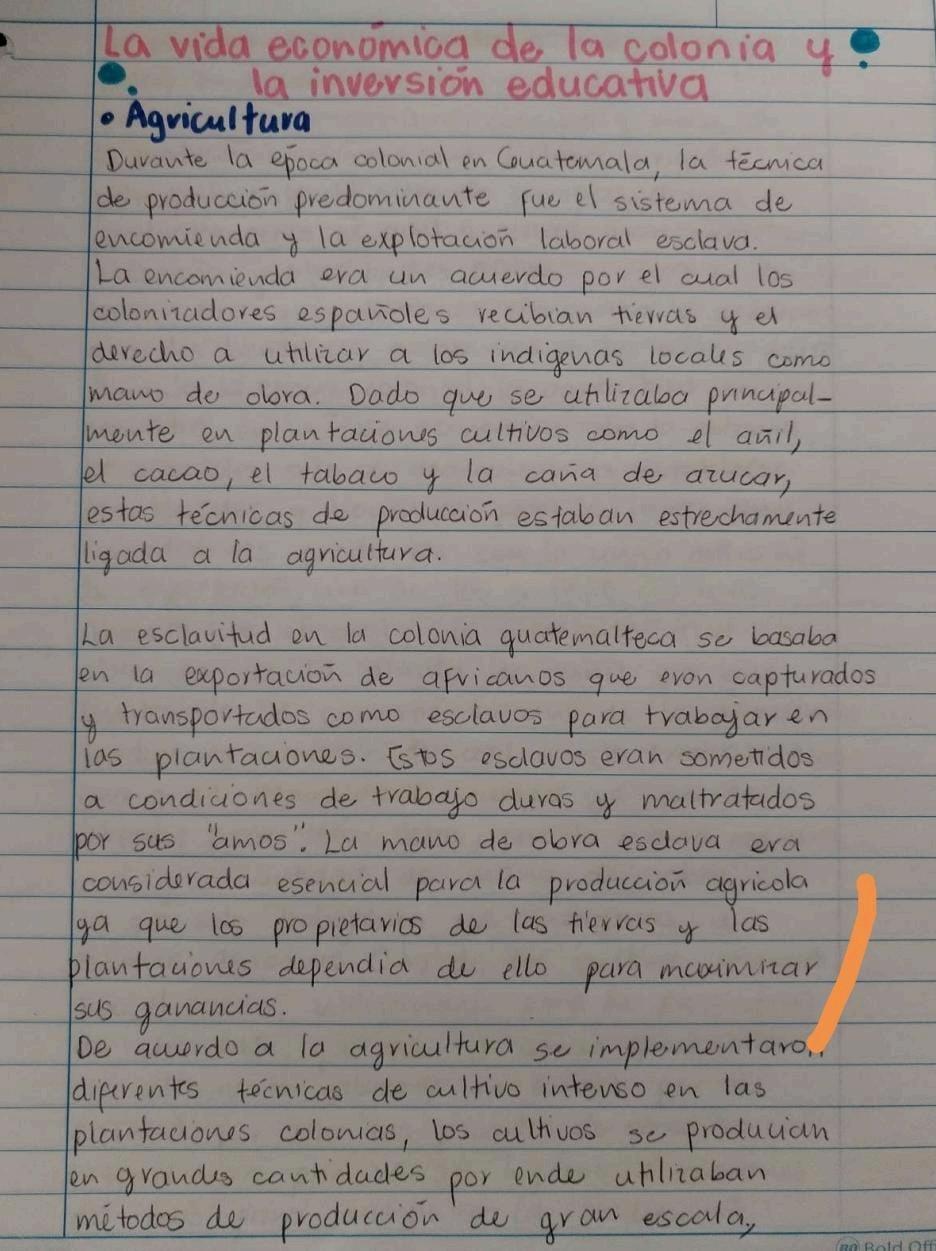 La vida económica de la colonia y
la inversión educativa
• Agricultura
Durante la época colonial en Guatemala, la técnica
de producción predominante fue el sistema de
encomienda y la explotación laboral esclava.
La encomienda era un acuerdo por el cual los
colonizadores españoles recibian tierras y el
derecho a utilizar a los indigenas locales como
mano de obra. Dado que se utilizaba principal-
mente en plantaciones cultivos como el añil,
el cacao, el tabaco y la caña de azucar,
estas técnicas de producción estaban estrechamente
ligada a la agricultura.
La esclavitud en la colonia guatemalteca se basaba
en la exportación de africanos que eron capturados
y transportados como esclavos para trabajar en
las plantaciones. Estos esclavos eran sometidos
a condiciones de trabajo duras y maltratados
por sus "amos". La mano de obra esclava era
considerada esencial para la producción agricola
ya que los propietarios de las tierras y las
plantaciones dependia de ello para maximizar
sus ganancias.
De acuerdo a la agricultura se implementaron
diferentes técnicas de cultivo intenso en las
plantaciones colonias, los cultivos se producian
en grandes cantidades por ende utilizaban
métodos de producción de gran escala,
Bold Off